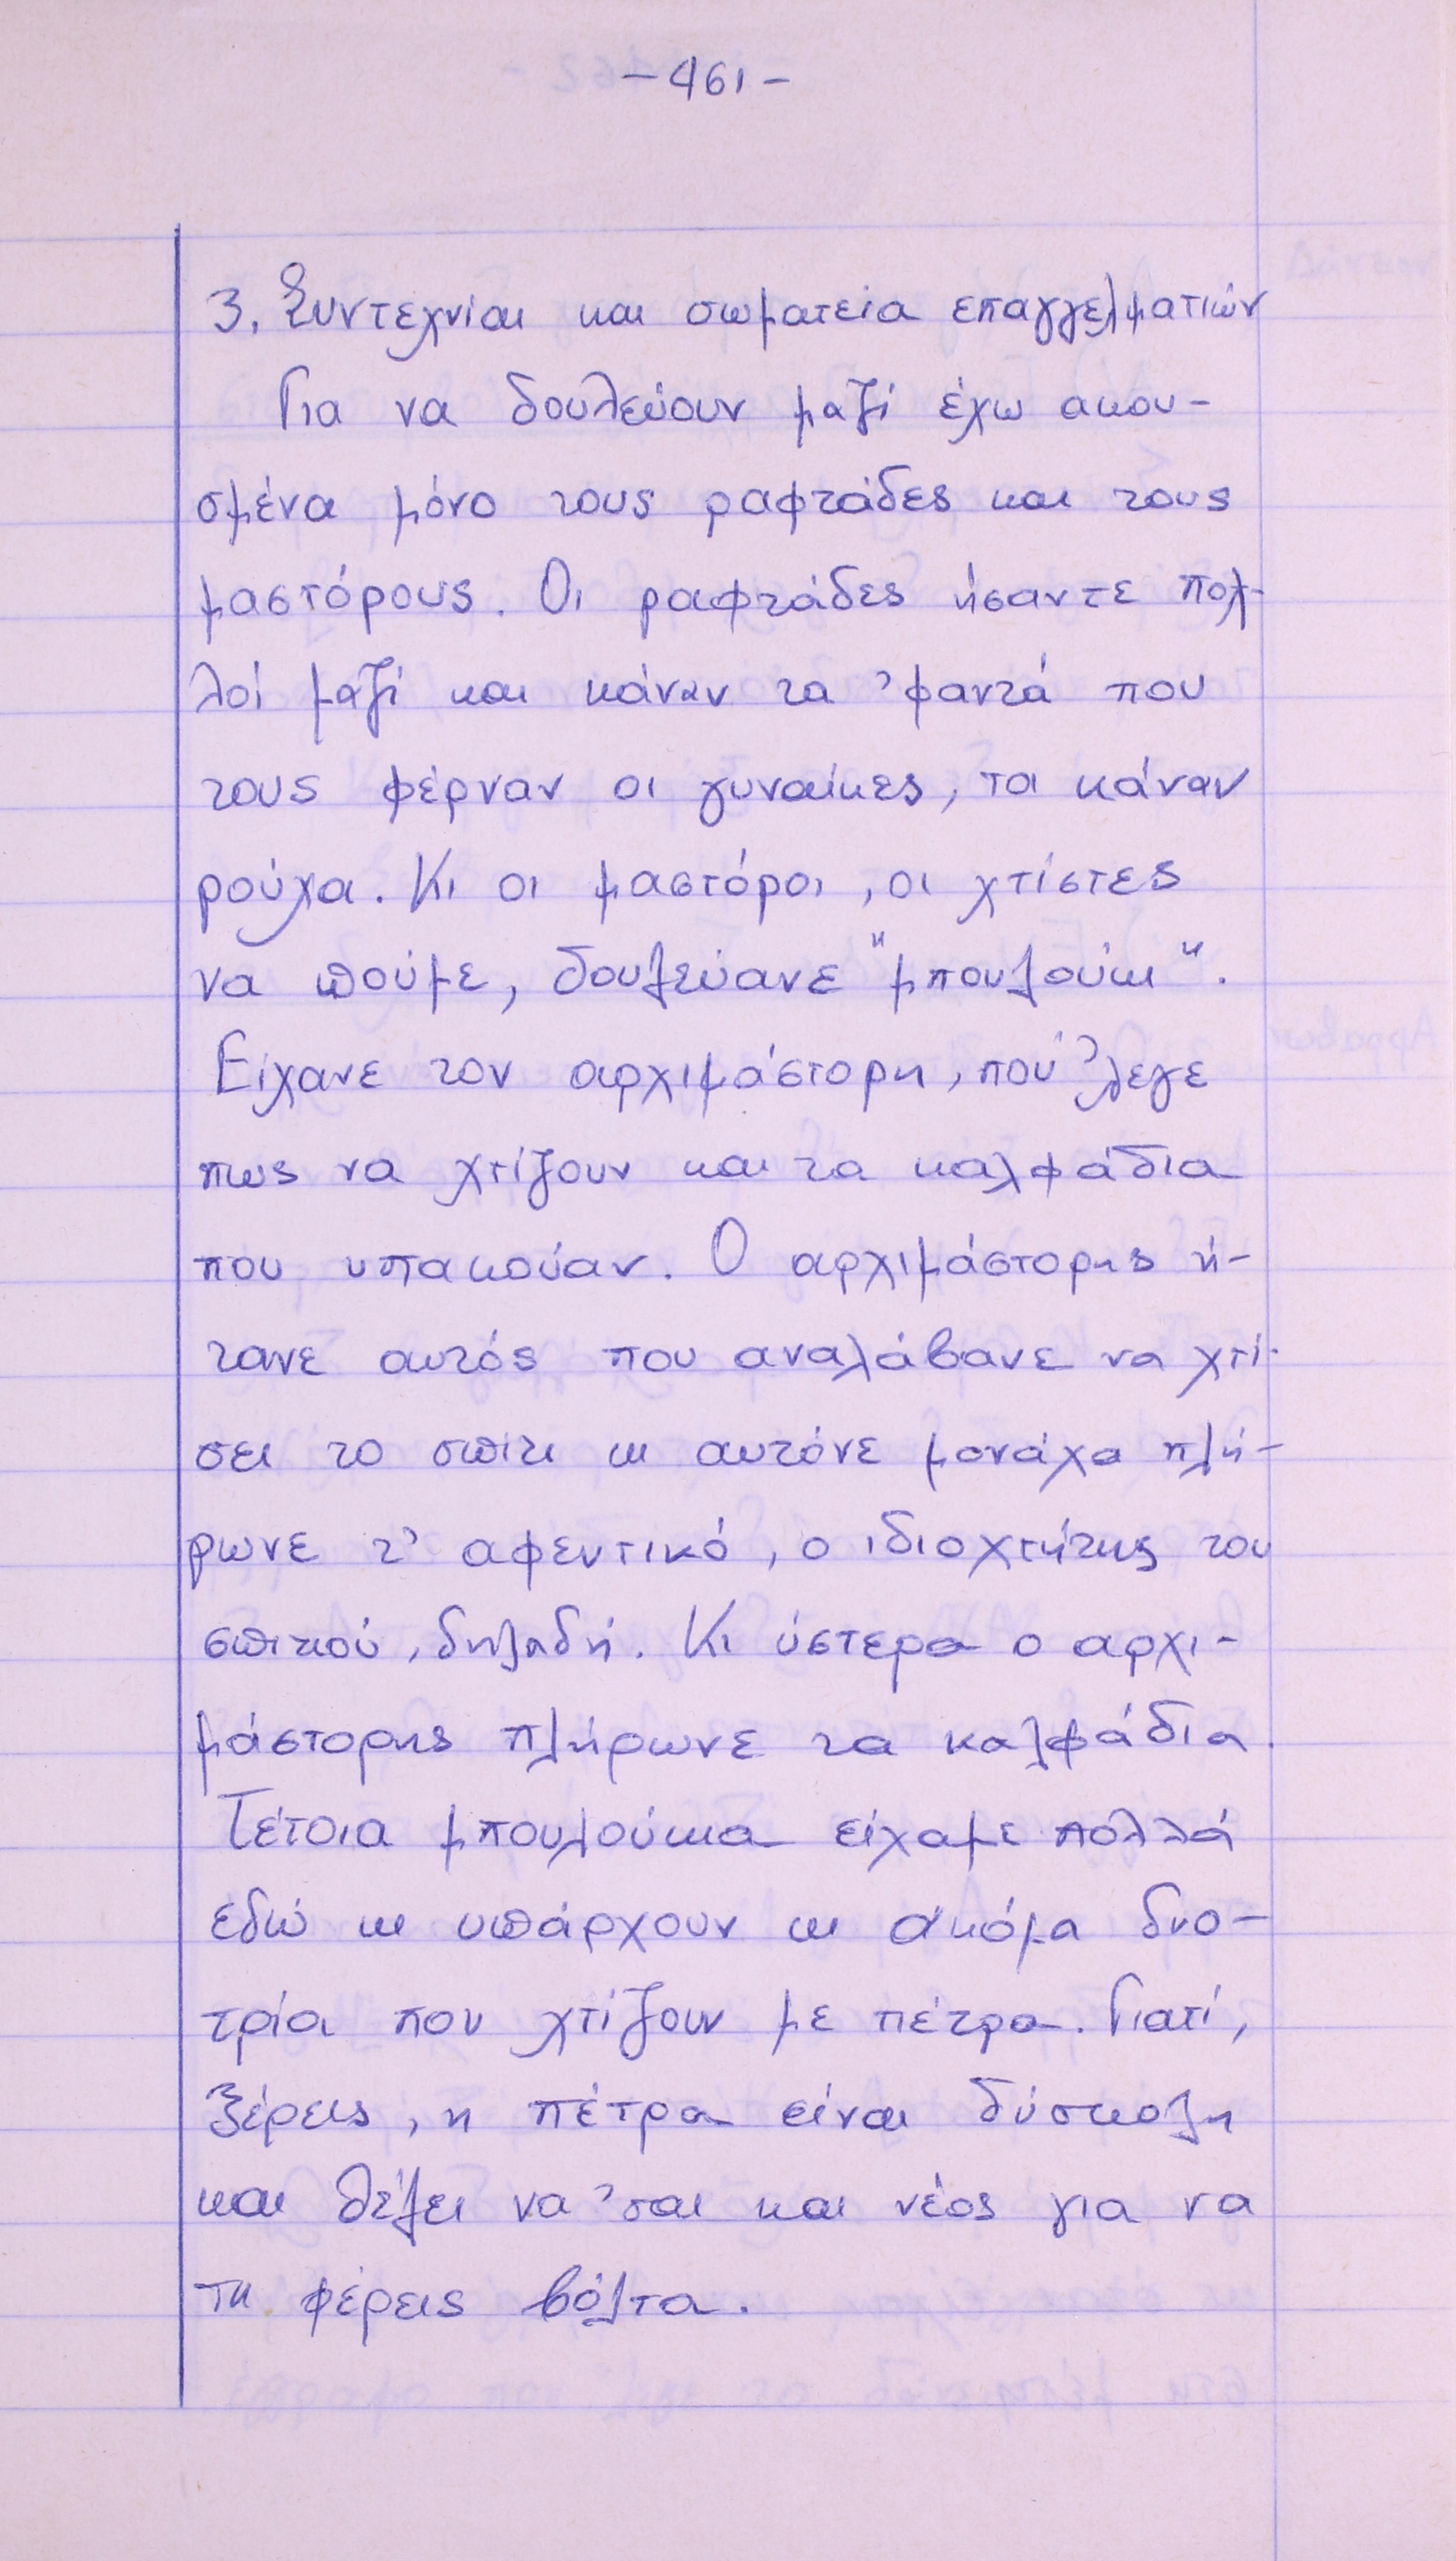 -461-
3. Συντεχνίαι και σωματεία επαγγελματιών
Για να δουλεύουν μαζί έχω ακου-
σμένα μόνο τους ραφτάδες και τους
μαστόρους. Οι ραφτάδες ήσαντε πολ-
λοί μαζί και κάναν τα 'φαντά που
τους φέρναν οι γυναίκες, τα κάναν
ρούχα. Κι οι μαστόροι, οι χτίστες
να πούμε, δουλεύανε "μπουλούκι".
Είχανε τον αρχιμάστορη, πού 'λεγε
πως να χτίζουν και τα καλφάδια
που υπακούαν. Ο αρχιμάστορης ή-
τανε αυτός που αναλάβανε να χτί-
σει το σπίτι κι αυτόνε μονάχα πλή-
ρωνε τ' αφεντικό, ο ιδιοχτήτης του
σπιτιού, δηλαδή. Κι ύστερα ο αρχι-
μάστορης πλήρωνε τα καλφάδια.
Τέτοια μπουλούκια είχαμε πολλά
εδώ κι υπάρχουν κι ακόμα δυο-
τρία που χτίζουν με πέτρα. Γιατί,
ξέρεις, η πέτρα είναι δύσκολη
και θέλει να 'σαι και νέος για να
τη φέρεις βόλτα.